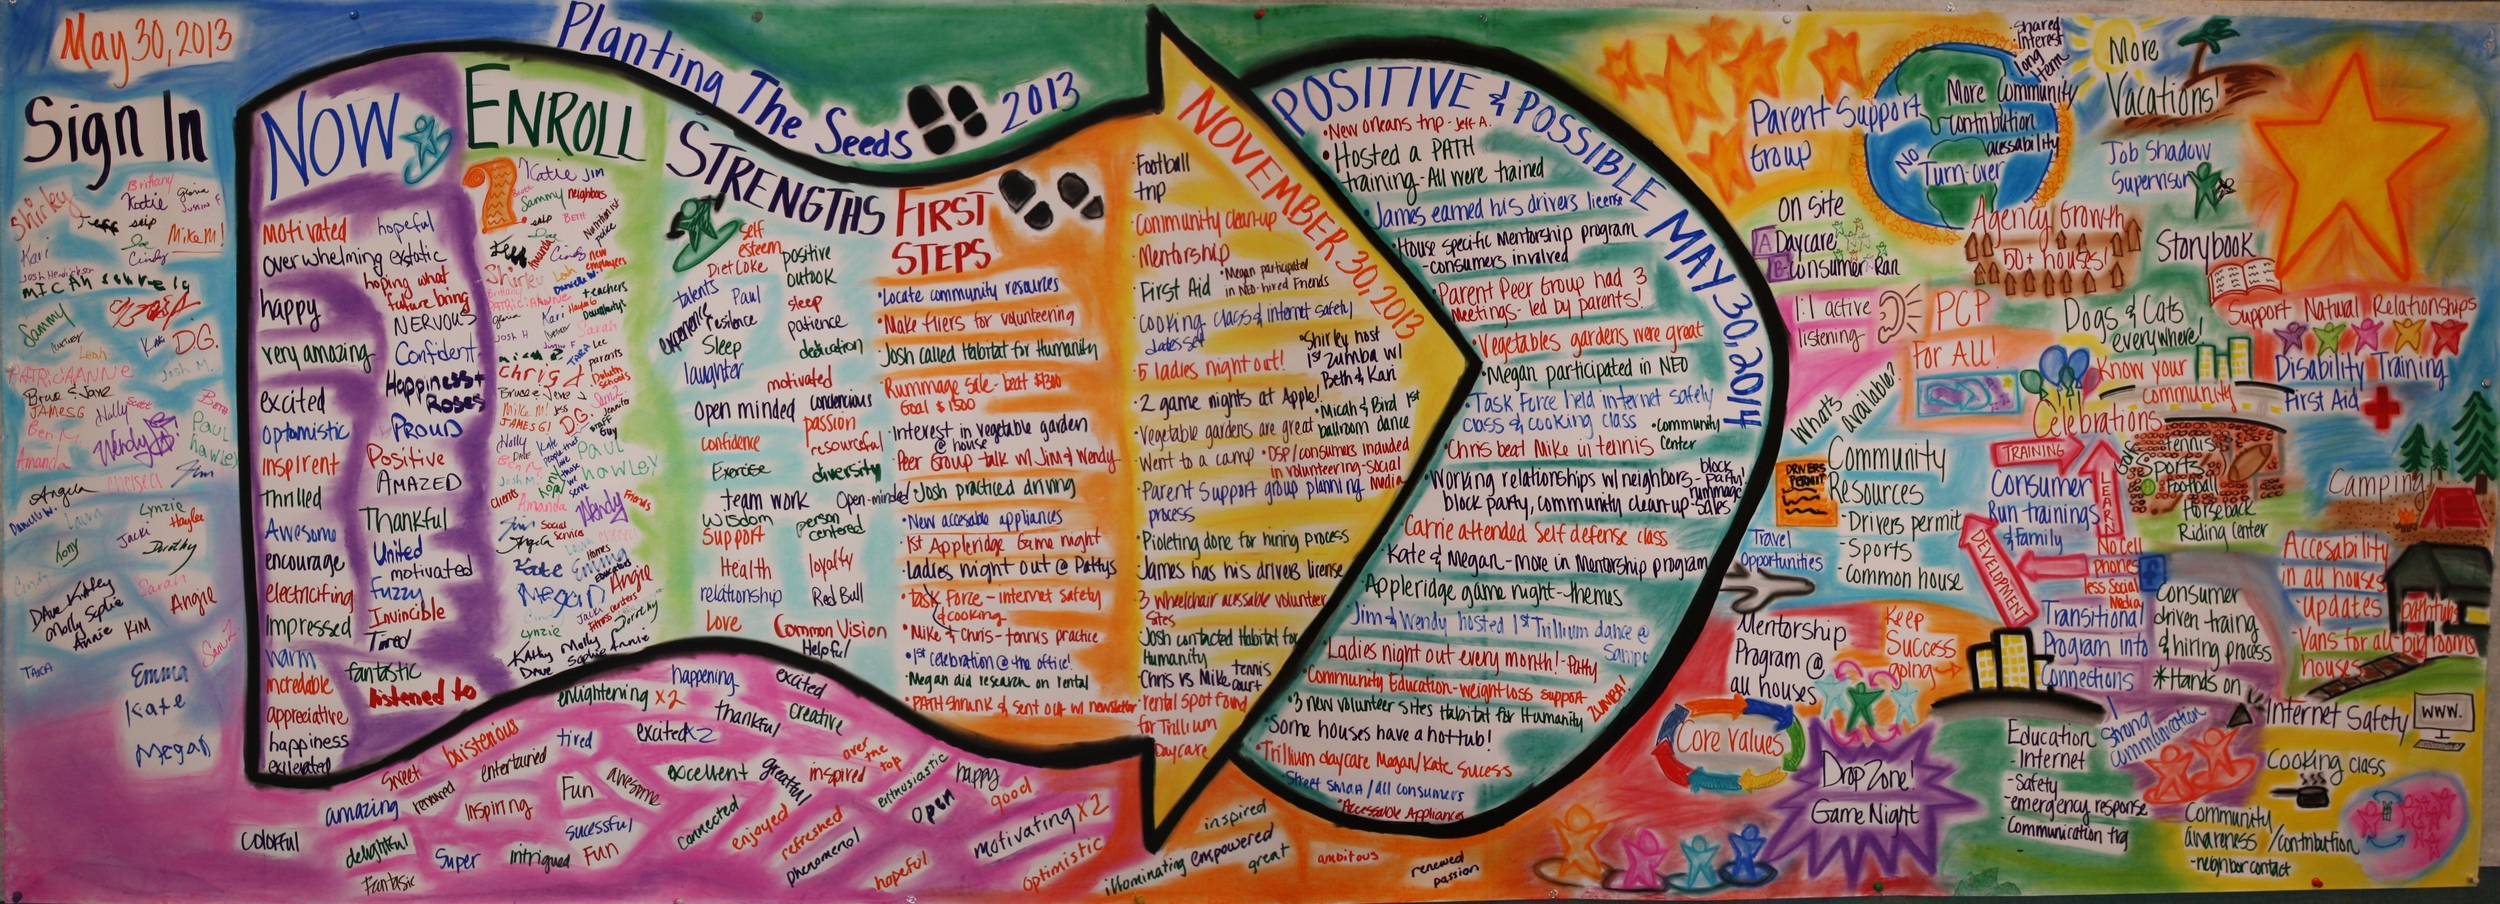 May 30, 2013
Sign In
Shirley
Brittany
Katie
Gloria
Justin F
Jeff
skip
Mike M!
Kari
Joe
Cindy
Josh Hendrickson
Sammy
Leah
Kati
D.G.
PATRICIAANNE
Josh M.
Bruce & Jave
JAMES G
Holly
Scott
BETH
Ben M.
Wendy
Paul
hawley
Amanda
chelsea
Jim
Angela
Danielle W.
Laura
Lynzie
Jacki
Haylee
Tony
Dorothy
Cindi
Dave Kathy
Molly Sophie
Annie
KIM
Sarah
Angie
TARA
Emma
Kate
Megan
Planting The Seeds 2013
NOW
motivated
overwhelming
happy
very amazing
excited
optomistic
inspirent
thrilled
Awesome
encourage
electricifing
Impressed
warm
incredable
appreciative
happiness
exilerated
hopeful
exstatic
hoping what
future bring
NERVOUS
Confident
Happiness +
Roses
PROUD
Positive
AMAZED
Thankful
United
motivated
fuzzy
Invincible
Tired
fantastic
listened to
ENROLL
Katie
JIM
Sammy
neighbors
skip
BETH
Nutritionist
police
Jeff
Amanda
Cindy
new
employees
Shirley
Leah
Danielle W.
Brittany
teachers
PATRICIAANNE
Kari
Gloria
Josh H
Sarah
TARA
Lee
parents
Chris J
Duluth
Schools
Bruce & Jave J
Mike M!
Jess
JAMES G
D.G.
Jennifer
staff
Guy
Holly
Kate
DAVE
Ben M
Paul
hawley
Josh M
people that
we
those
serve
Clients
Amanda
Tony
Wendy
Friends
Jim
Social
Services
Angela
Homes
Kate
Emma
Angie
Megan
Jacki
fitness centers
Dorothy
Lynzie
Kathy
Molly
Dave
Sophie Annie
STRENGTHS
self
esteem
Diet Coke
talents
Paul
experience
resilence
Sleep
laughter
positive
outlook
sleep
patience
dedication
motivated
Open minded
conciencious
confidence
passion
resourceful
Exercise
diversity
team work
Open-minded
Wisdom
Support
person
centered
Health
loyalty
relationship
Red Bull
Love
Common Vision
Helpful
FIRST
STEPS
• Locate community resources
• Make fliers for volunteering
Josh called Habitat for Humanity
• Rummage Sale - beat $1300
Goal $1500
• Interest in vegetable garden
@ house
• Peer Group talk w/ Jim & Wendy
• Josh practiced driving
• New accesable appliances
• 1st Appleridge Game night
• Ladies night out @ Pattys
• task force - internet safety
& cooking
• Mike & Chris - tennis practice
• 1st celebration @ the office!
• Megan aid research on rental
• PATH shrunk & sent out w/ newsletter
NOVEMBER 30, 2013
• Football
trip
• Community clean-up
Mentorship
First Aid
• Megan participated
in NEO - hired Friends
• Cooking class & internet safety
dates set
• 5 ladies night out!
• Shirley host
1st zumba w/
Beth & Kari
• 2 game nights at Apple!
• Micah & Bird 1st
ballroom dance
• Vegetable gardens are great
Went to a camp
• DSP/consumers included
in volunteering-social
media
• Parent Support group planning
process
• Pioleting done for hiring process
James has his drivers license
3 wheelchair accssable volunteer
sites
Josh contacted Habitat for
Humanity
Chris vs Mike tennis
court
• rental spot found
for Trillium
Daycare
POSITIVE & POSSIBLE MAY 30, 2014
• New Orleans trip - Jeff A.
• Hosted a PATH
training - All were trained
• James earned his drivers license
• House specific Mentorship program
- consumers involved
• Parent Peer Group had 3
Meetings - led by parents!
• Vegetables gardens were great
• Megan participated in NEO
• Task Force held internet safely
class & cooking class
• Community
center
• Chris beat Mike in tennis
• Working relationships w/ neighbors - block party!
block party, community clean-up - rummage sales
• Carrie attended Self defense class
• Kate & Megan - more in Mentorship program
• Appleridge game night - themes
• Jim & Wendy hosted 1st Trillium dance @
• Ladies night out every month! - Patty
• Community Education - weight loss support
ZUMBA!
• 3 new volunteer sites Habitat for Humanity
• Some houses have a hottub!
• Trillium daycare Megan/Kate Sucess
• Street Sman / all consumers
• Accessable Appliances
colorful
amazing
sweet
boisterous
renewed
entertained
tired
enlightening x2
happening
excited
excited x2
thankful
creative
delightful
Fantasic
Super
Inspiring
Fun
awesome
intrigued
Fun
sucessful
excellent
greatful
inspired
over
the
top
connected
enjoyed
refreshed
phenomenol
enthusiastic
happy
open
good
hopeful
motivating x2
optimistic
inspired
illominating
empowered
great
ambitous
renewed
passion
Parent Support
Group
• Shared
Interest
long
term
More Community
contribution
accesability
No
Turn-over
More
Vacations!
Job Shadow
Supervisor
On Site
A Daycare
B - Consumer Ran
Agency Growth
50+ houses!
Storybook
1:1 active
listening
PCP
For All!
Dogs & Cats
everywhere!
Support Natural Relationships
Disability Training
First Aid
Know your
community
Celebrations
What's
available?
Community
Resources
- Drivers permit
- Sports
- Common house
DRIVERS
PERMIT
TRAINING
LEARN
DEVELOPMENT
Consumer
Run trainings
& family
Golf
tennis
Sports
football
Horseback
Riding center
Camping
Travel
Opportunities
No Cell
phones
less Social
Media
Accesability
in all houses
- updates
- Vans for all
houses
bathtubs
- big rooms
Mentorship
Program @
all houses
Keep
Success
going
Transitional
Program into
Connections
Consumer
driven traing
& hiring process
* Hands on
Core Values
Drop Zone!
Game Night
Education
- Internet
- Safety
- emergency response
- Communication trg
Strong
communication
Internet Safety
WWW.
Cooking class
Community
awareness / contribution
- neighbor contact